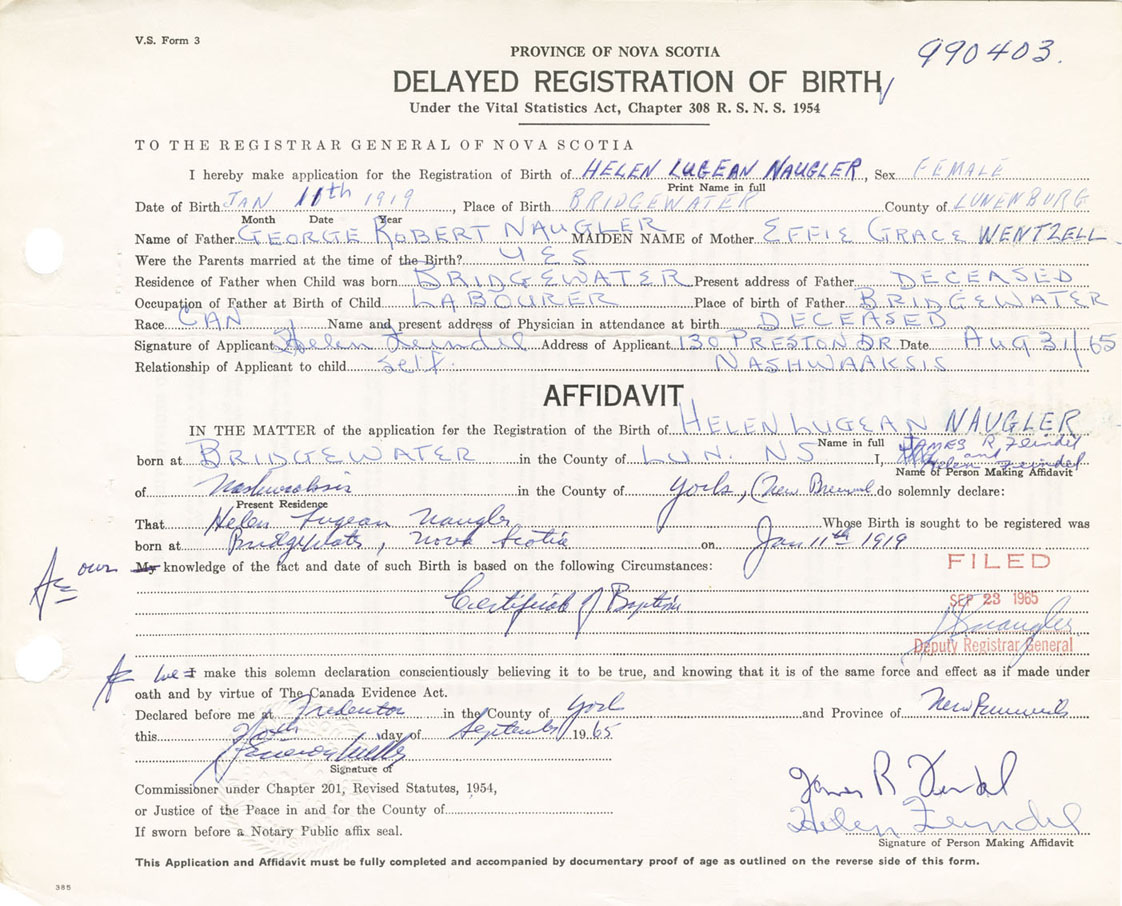 V.S. Form 3
990403.
PROVINCE OF NOVA SCOTIA
DELAYED REGISTRATION OF BIRTH
Under the Vital Statistics Act, Chapter 308 R. S. N. S. 1954
TO THE REGISTRAR GENERAL OF NOVA SCOTIA
I hereby make application for the Registration of Birth of HELEN LUGEAN NAUGLER, Sex FEMALE
Print Name in full
Date of Birth JAN 11th 1919, Place of Birth BRIDGEWATER County of LUNENBURG
Month Date Year
Name of Father GEORGE ROBERT NAUGLER MAIDEN NAME of Mother EFFIE GRACE WENTZELL
Were the Parents married at the time of the Birth? YES
Residence of Father when Child was born BRIDGEWATER Present address of Father DECEASED
Occupation of Father at Birth of Child LABOURER Place of birth of Father BRIDGEWATER
Race CAN Name and present address of Physician in attendance at birth DECEASED
Signature of Applicant Helen Feindel Address of Applicant 130 PRESTON DR. Date AUG 31/65
Relationship of Applicant to child self. NASHWAAKSIS
AFFIDAVIT
IN THE MATTER of the application for the Registration of the Birth of HELEN LUGEAN NAUGLER
Name in full
born at BRIDGEWATER in the County of LUN. NS I, JAMES R Feindel and Helen Feindel
Name of Person Making Affidavit
of Nashwaaksis in the County of York, (New Brunswick do solemnly declare:
Present Residence
That Helen Lugean Naugler Whose Birth is sought to be registered was
born at BridgeWater, Nova Scotia on Jan 11th 1919
our My knowledge of the fact and date of such Birth is based on the following Circumstances:
FILED
Certificate of Baptism
SEP 23 1965
Deputy Registrar General
we I make this solemn declaration conscientiously believing it to be true, and knowing that it is of the same force and effect as if made under
oath and by virtue of The Canada Evidence Act.
Declared before me at Fredericton in the County of York and Province of New Brunswick
this day of September 1965
Signature of
Commissioner under Chapter 201, Revised Statutes, 1954,
or Justice of the Peace in and for the County of
If sworn before a Notary Public affix seal.
James R Feindel
Helen Feindel
Signature of Person Making Affidavit
This Application and Affidavit must be fully completed and accompanied by documentary proof of age as outlined on the reverse side of this form.
385